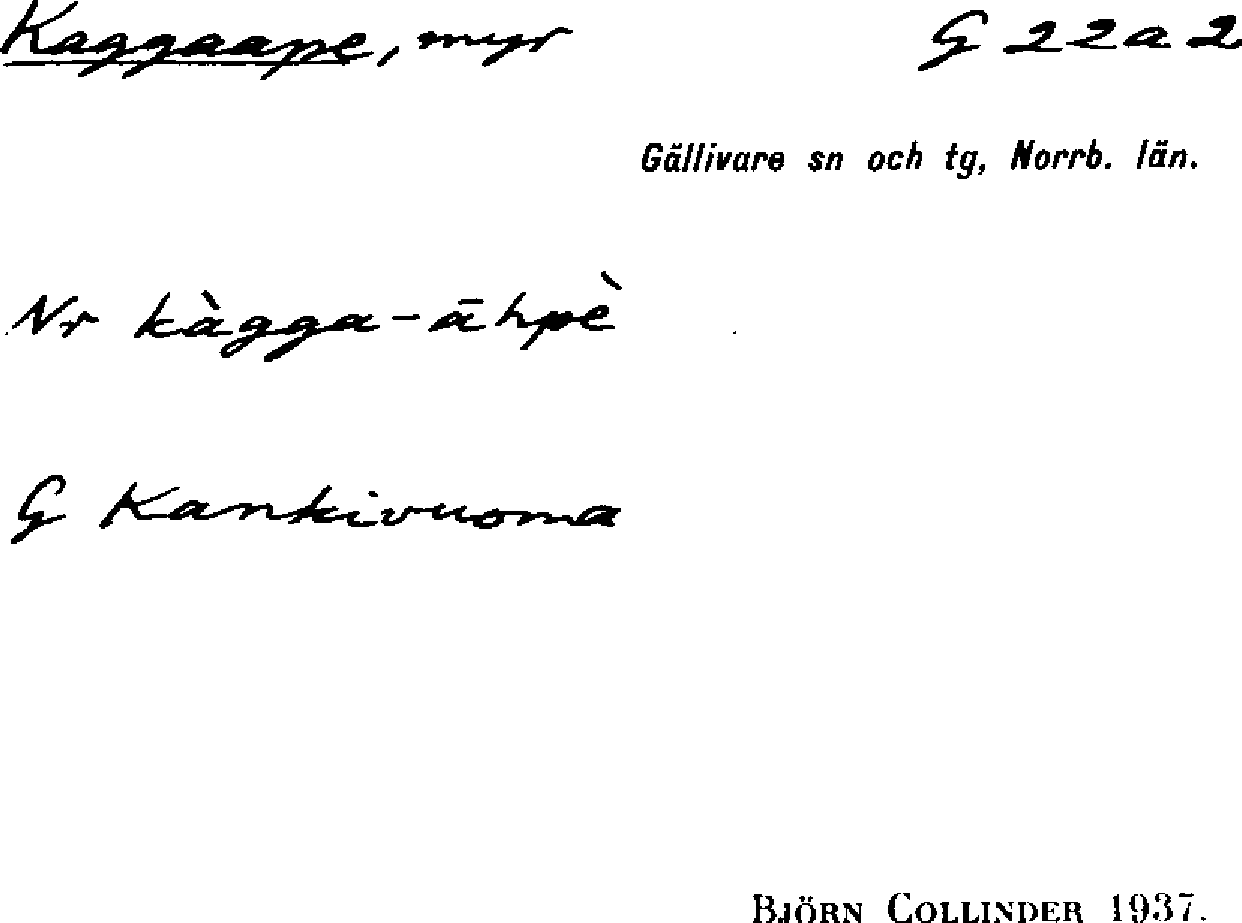 Kaggaape, myr G 22a2
Gällivare sn och tg, Norrb. län.
Nr kàgga-āhpè
G Kankivuoma
BJÖRN COLLINDER 1937.